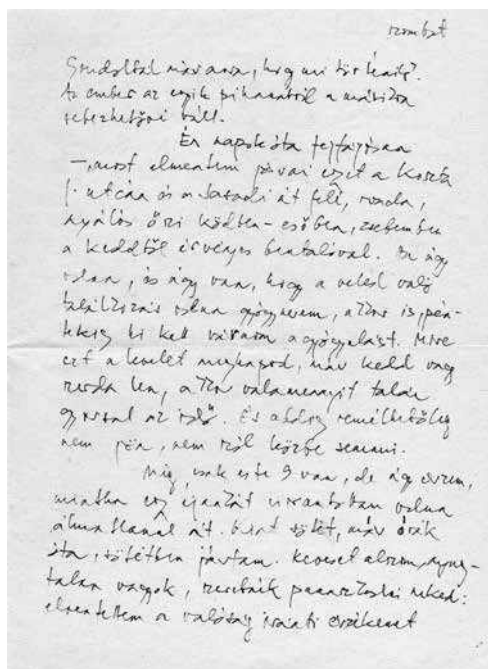 szombat
Gondoltál már arra, hogy mi történik?
Az ember az egyik pillanatról a másikra
sebezhetővé vált.
Én napok óta fejfájósan
– most elmentem járni egyet a
utcán és a át felé, ronda,
nyálós őszi ködben-esőben, zsebemben
a keddtől érvényes beutalóval. Ha úgy
volna, és úgy van, hogy a veled való
találkozás volna gyógyszerem, akkor is pén-
tekig ki kell várnom a gyógyulást. Mire
ezt a levelet megkapod, már kedd vagy
szerda lesz, akkor valamennyit talán
gyorsul az idő. És addig remélhetőleg
nem jön, nem szól közbe semmi.
Még csak este 9 van, de úgy érzem,
mintha egy éjszakát virrasztottam volna
álmatlanul át. Kint sötét, már órák
óta, sötétben jártam. Keveset alszom, nyug-
talan vagyok, szeretnék panaszkodni neked:
elvesztettem a valóság iránti érzékemet